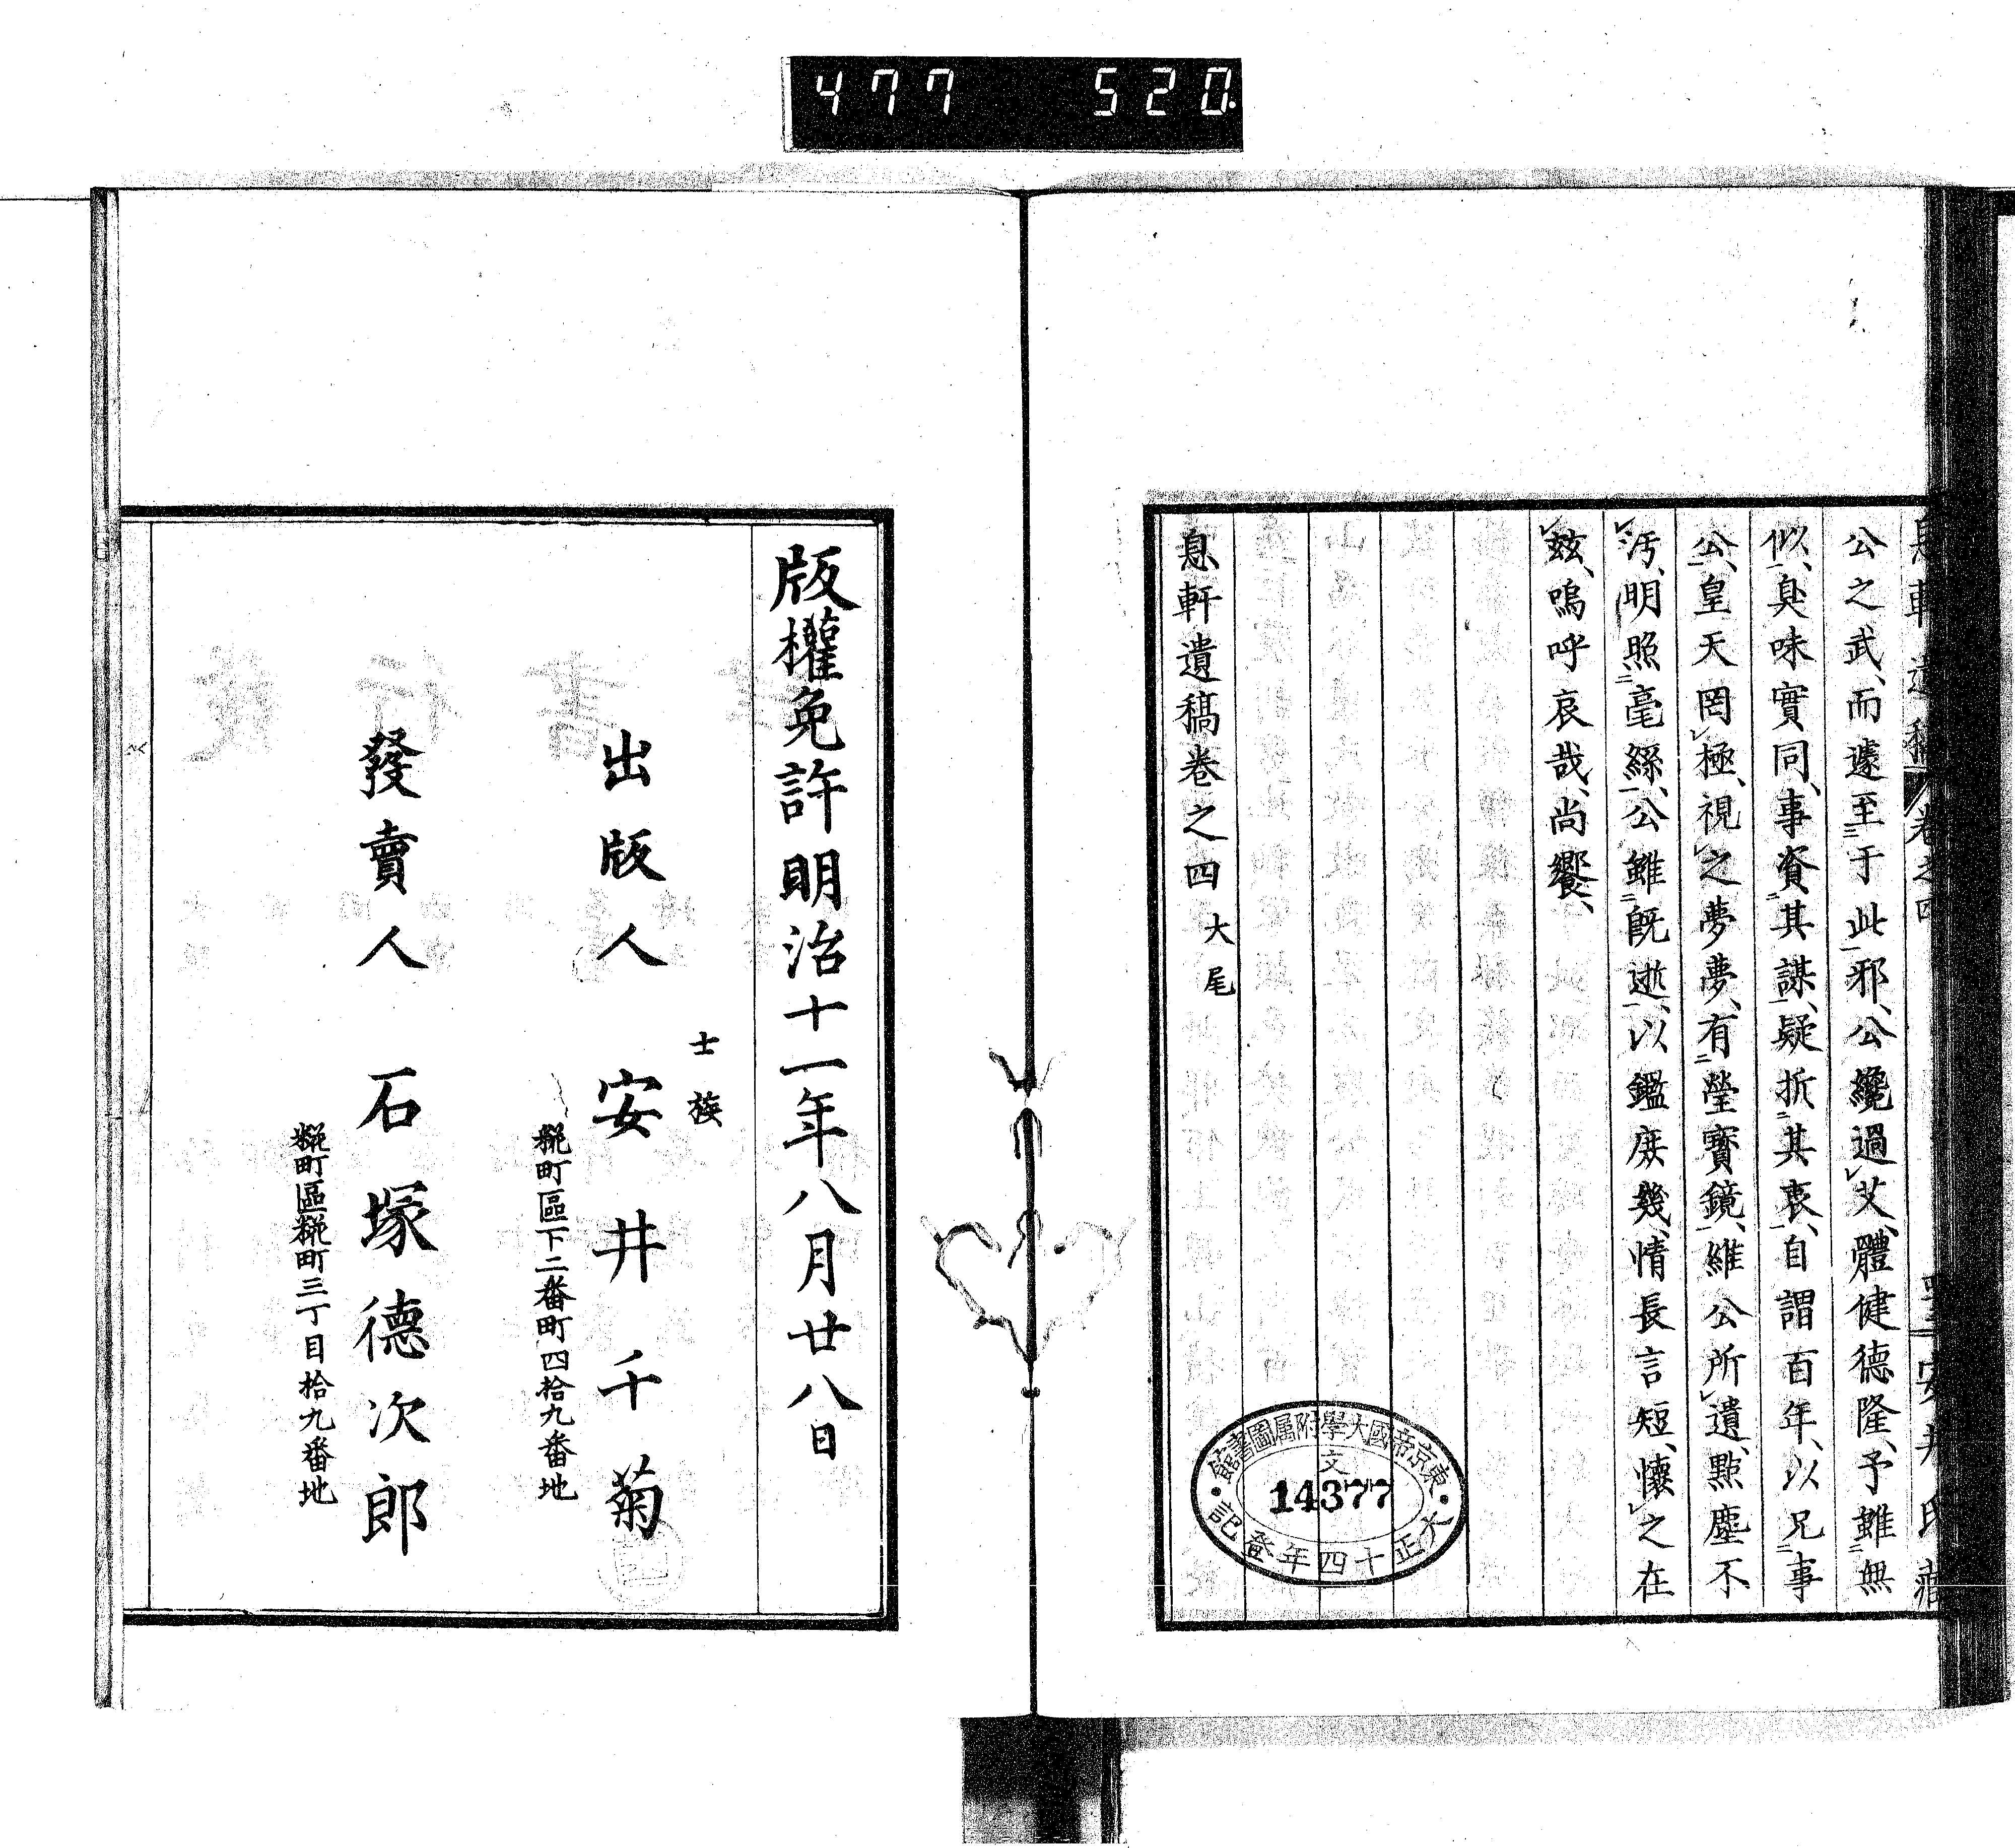 477 520
息軒遺稿 卷之四 安井氏藏
公之武、而遽至于此邪、公纔過艾、體健德隆、予雖無
似、臭味實同、事資其謀、疑折其衷、自謂百年、以兄事
公、皇天罔極、視之夢夢、有瑩寶鏡、維公所遺、點塵不
汚、明照毫絲、公雖既逝、以鑑庶幾、情長言短、懷之在
茲、嗚呼哀哉、尚饗、
息軒遺稿卷之四 大尾
東京帝國大學附属圖書館
文
14377
大正十四年登記
版權免許明治十一年八月廿八日
士族
出版人 安井千菊
麹町區下二番町四拾九番地
發賣人 石塚德次郎
麹町區麹町三丁目拾九番地